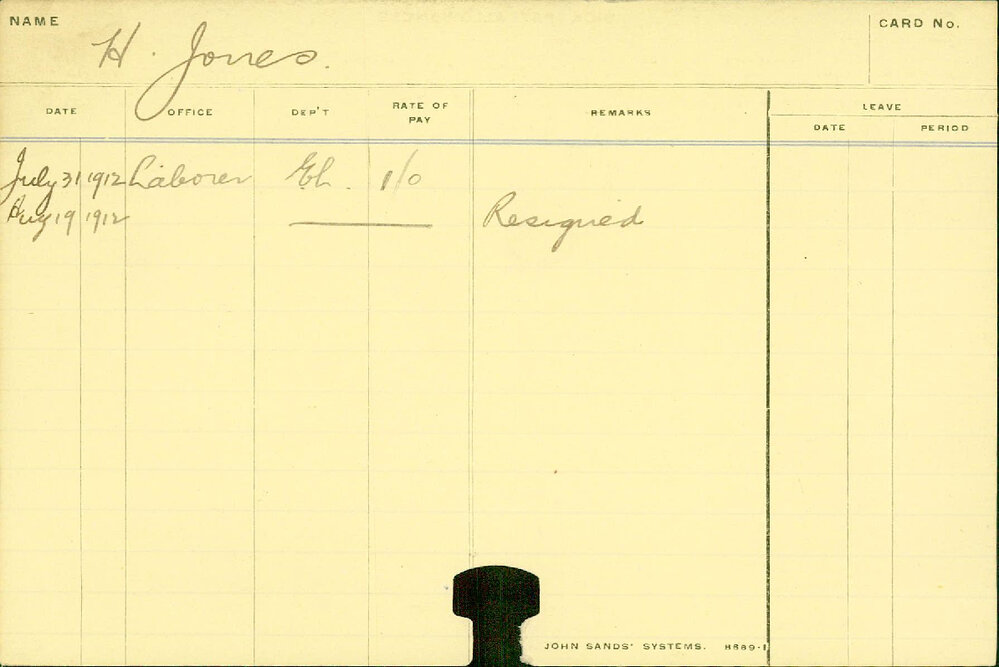 NAME H. Jones. CARD No.
DATE OFFICE DEP'T RATE OF PAY REMARKS LEAVE
DATE PERIOD
July 31 1912 Laborer El. 1/0
Aug 19 1912 Resigned
JOHN SANDS' SYSTEMS. H689-1